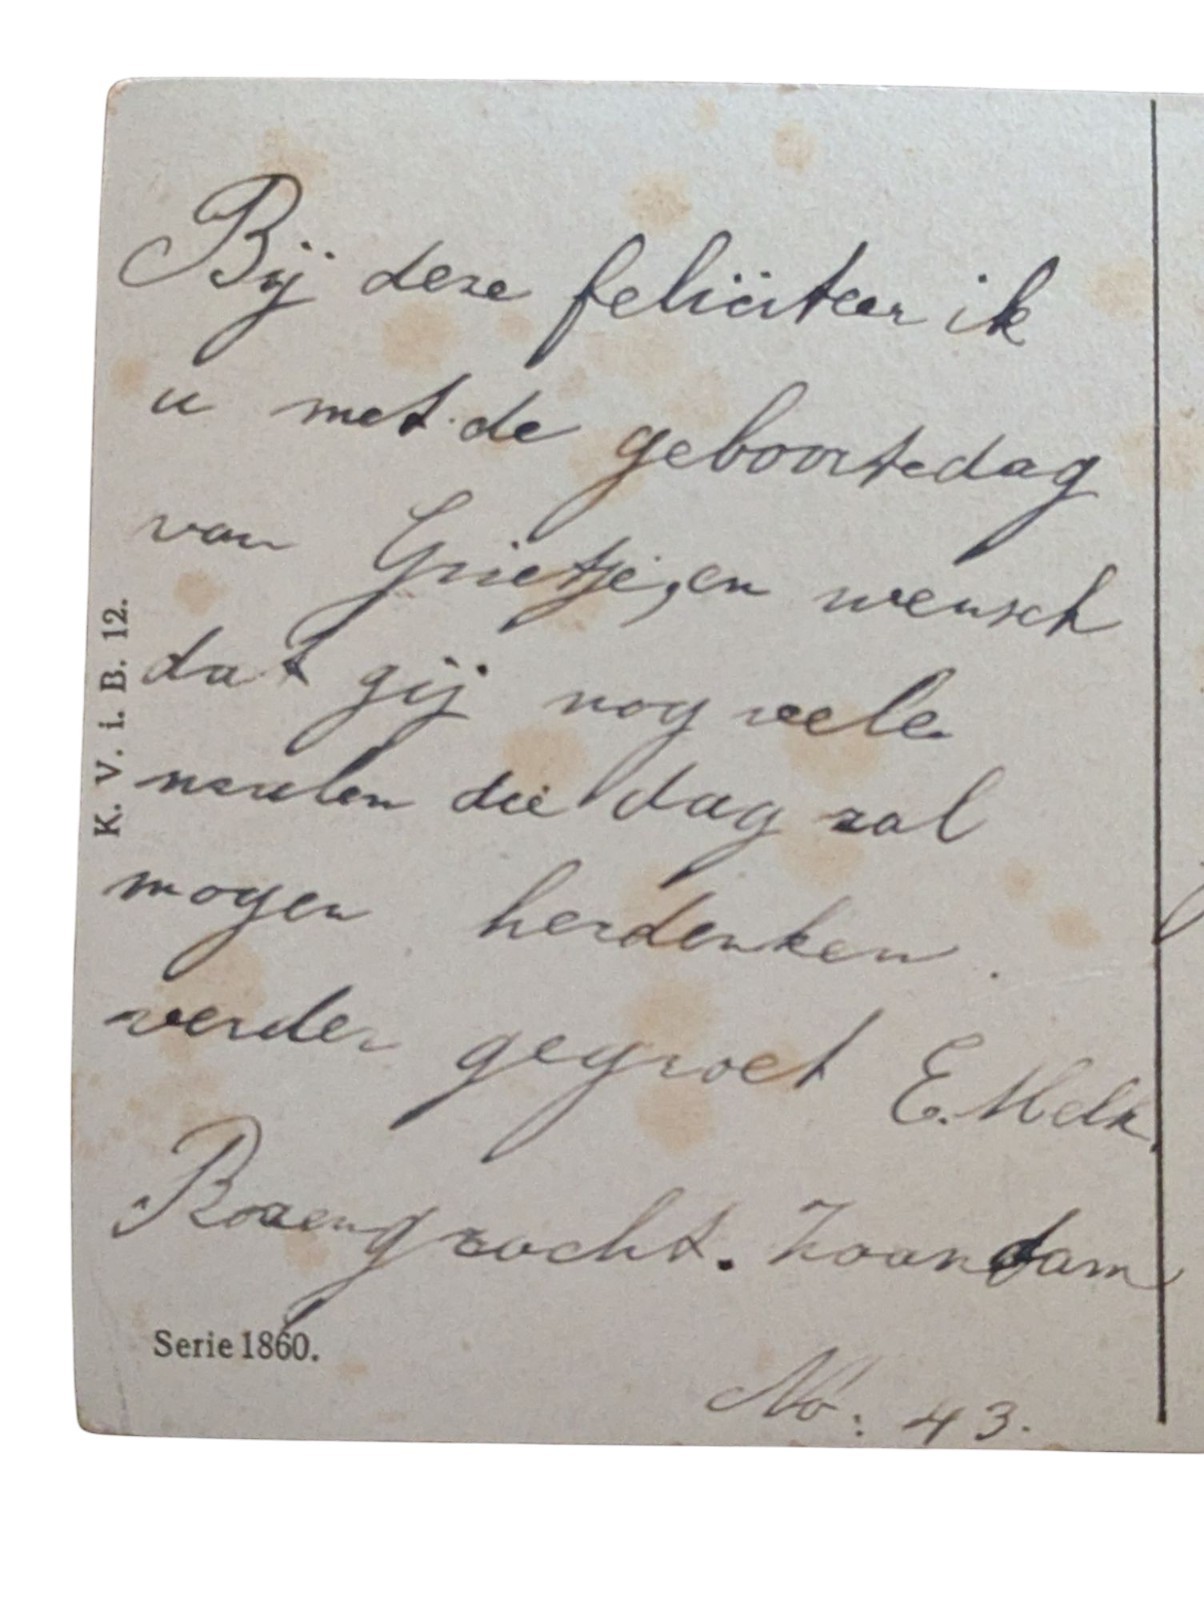 Bij deze feliciteer ik
u met de geboortedag
van Grietje, en wensch
dat gij nog vele
malen die dag zal
mogen herdenken.
verder gegroet E. Melk.
Rozengracht. Zaandam
No: 43.
K. V. i. B. 12.
Serie 1860.